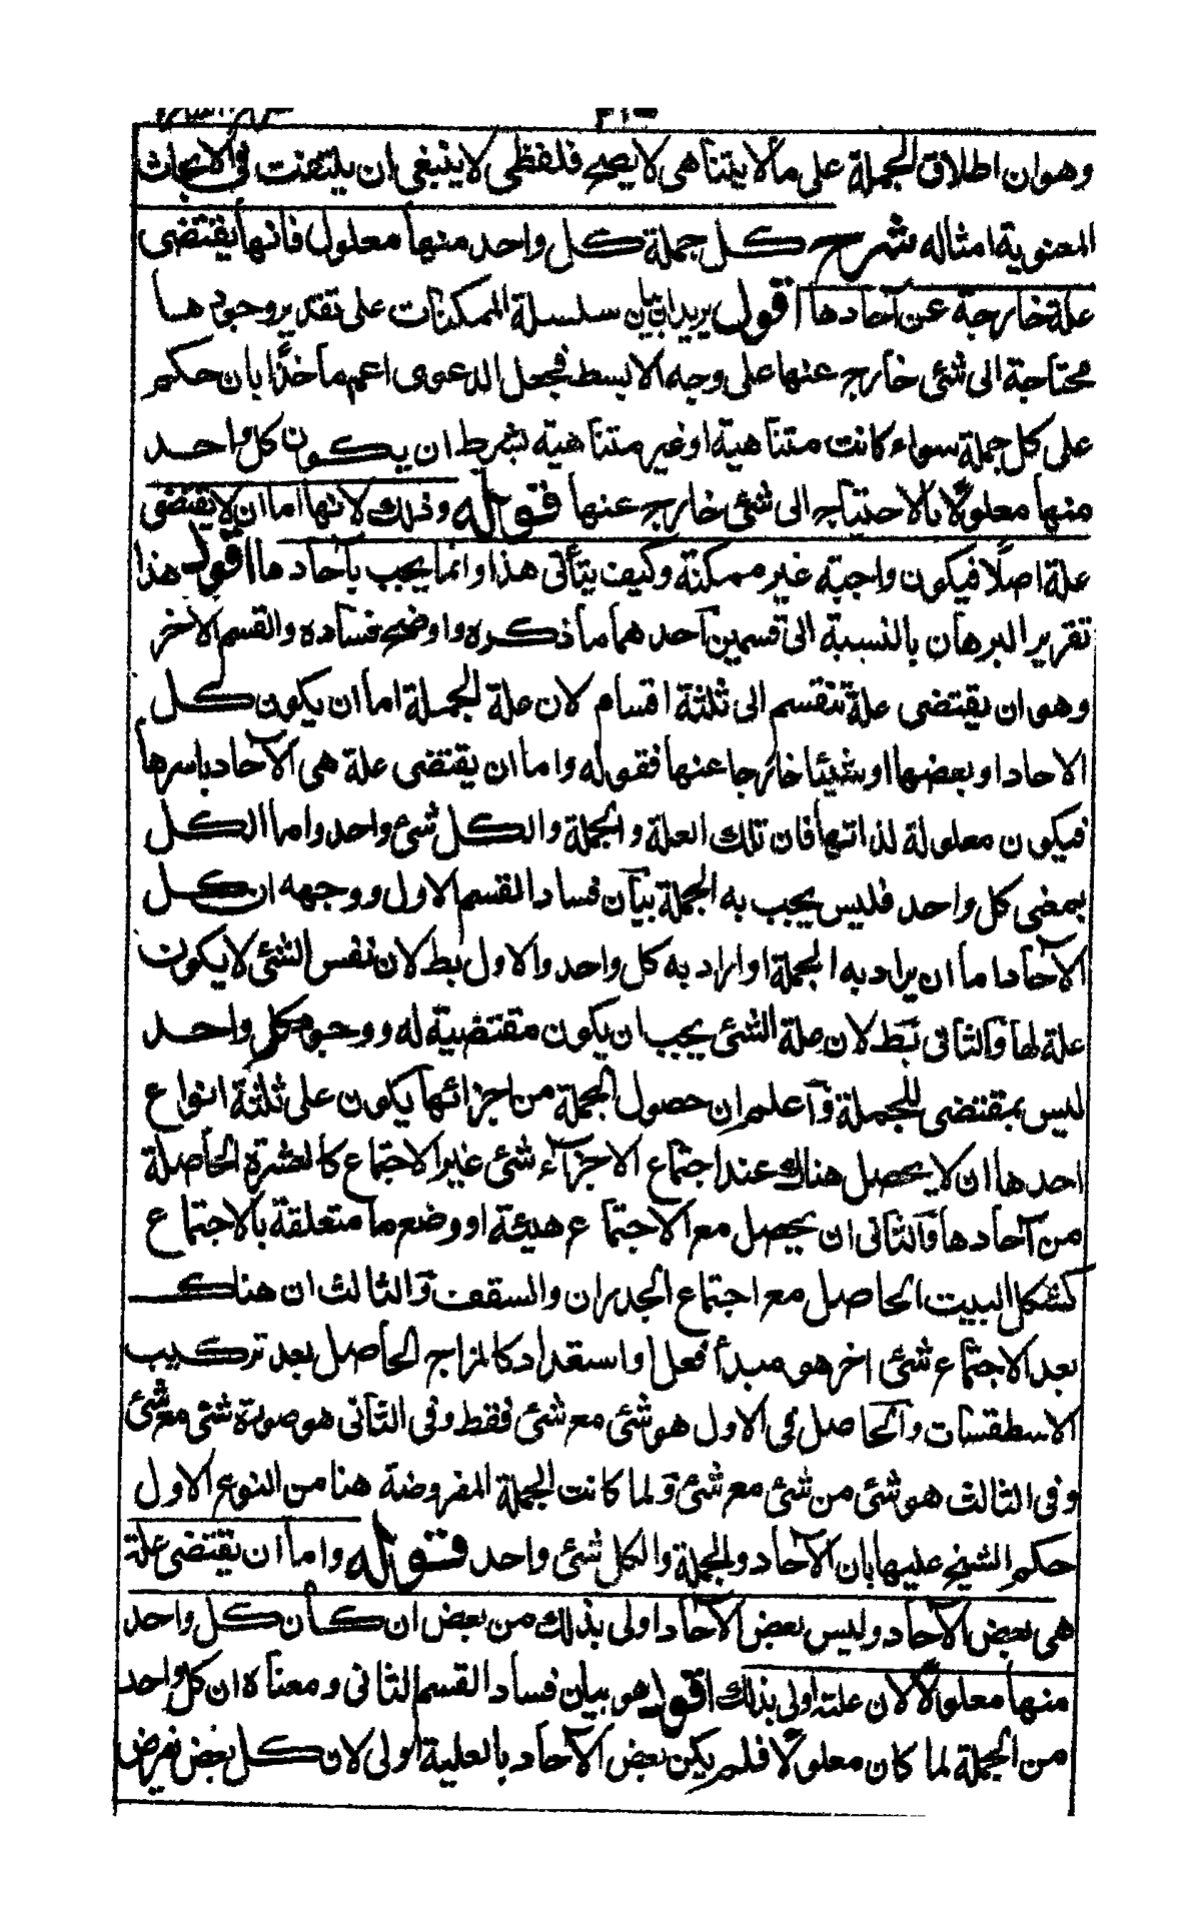 وهوان اطلاق الجملة على مالا يتناهى لا يصح فلفظى لا ينبغى ان يلتفت فى الابحاث
المعنوية امثاله شرح كل جملة كل واحد منها معلول فانها يقتضى
علة خارجة عن آحادها اقول يريد بيان سلسلة الممكنات على تقدير وجودها
محتاجة الى شئ خارج عنها على وجه الابسط فجعل الدعوى اعم مأخذا بان حكم
على كل جملة سواء كانت متناهية او غير متناهية بشرط ان يكون كل واحد
منها معلولا بالاحتياج الى شئ خارج عنها قوله وذلك لانها اما ان لا يقتضى
علة اصلا فيكون واجبة غير ممكنة وكيف يتأتى هذا وانما يجب بآحادها اقول هذا
تقرير البرهان بالنسبة الى قسمين آحدهما ما ذكره واوضح فساده والقسم الآخر
وهو ان يقتضى علة تنقسم الى ثلثة اقسام لان علة الجملة اما ان يكون كل
الاحاد او بعضها او شيئا خارجا عنها فقوله واما ان يقتضى علة هى الآحاد باسرها
فيكون معلولة لذاتها فان تلك العلة والجملة والكل شئ واحد واما الكل
بمعنى كل واحد فليس يجب به الجملة بيان فساد القسم الاول ووجهه ان كل
الآحاد اما ان يراد به الجملة او اراد به كل واحد والاول بط لان نفس الشئ لا يكون
علة لها والثانى بط لان علة الشئ يجب ان يكون مقتضية له ووجود كل واحد
ليس بمقتضى للجملة وآعلم ان حصول الجملة من اجزائها يكون على ثلثة انواع
احدها ان لا يحصل هناك عند اجتماع الاجزآء شئ غير الاجتماع كالعشرة الحاصلة
من آحادها والثانى ان يحصل مع الاجتماع هيئة او وضع ما متعلقة بالاجتماع
كشكل البيت الحاصل مع اجتماع الجدران والسقف والثالث ان هناك
بعد الاجتماع شئ اخر هو مبدأ فعل او استعداد كالمزاج الحاصل بعد تركيب
الاسطقسات والحاصل فى الاول هو شئ مع شئ فقط وفى الثانى هو صورة شئ مع شئ
وفى الثالث هو شئ من شئ مع شئ ولما كانت الجملة المفروضة هنا من النوع الاول
حكم الشيخ عليها بان الآحاد والجملة والكل شئ واحد قوله واما ان يقتضى علة
هى بعض الآحاد وليس بعض الآحاد اولى بذلك من بعض ان كان كل واحد
منها معلولا لان علته اولى بذلك اقول هو بيان فساد القسم الثانى ومعناه ان كل واحد
من الجملة لما كان معلولا فلم يكن بعض الآحاد بالعلية اولى لان كل بعض يفرض